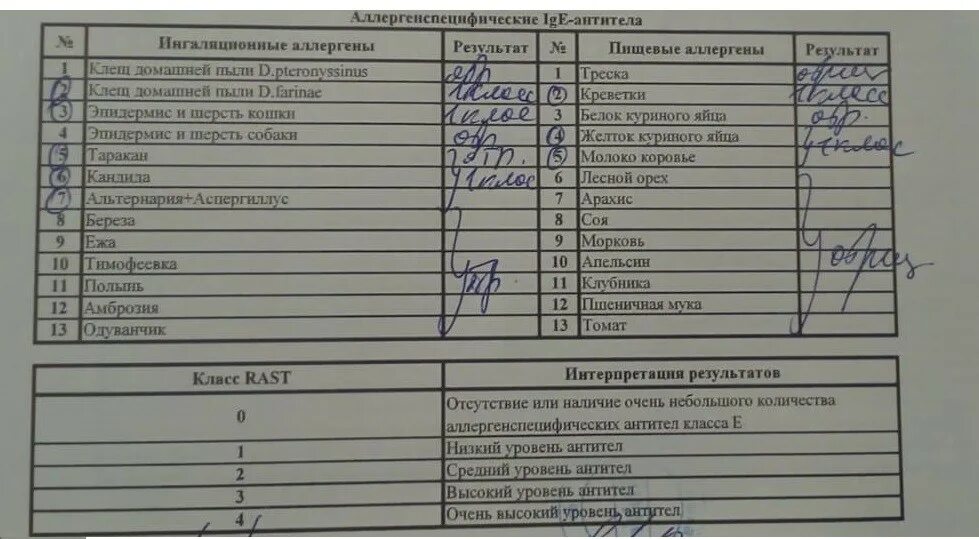 Аллергенспецифические IgE-антитела
№ Ингаляционные аллергены Результат № Пищевые аллергены Результат
1 Клещ домашней пыли D.pteronyssinus отр 1 Треска отриц
2 Клещ домашней пыли D.farinae 1 класс 2 Креветки 1 класс
3 Эпидермис и шерсть кошки 1 клас 3 Белок куриного яйца отр.
4 Эпидермис и шерсть собаки отр. 4 Желток куриного яйца 1 клас
5 Таракан 5 Молоко коровье
6 Кандида 1 клас 6 Лесной орех
7 Альтернария+Аспергиллус 7 Арахис
8 Береза 8 Соя
9 Ежа 9 Морковь
10 Тимофеевка 10 Апельсин отриц
11 Полынь отр. 11 Клубника
12 Амброзия 12 Пшеничная мука
13 Одуванчик 13 Томат
Класс RAST Интерпретация результатов
0 Отсутствие или наличие очень небольшого количества
аллергенспецифических антител класса Е
1 Низкий уровень антител
2 Средний уровень антител
3 Высокий уровень антител
4 Очень высокий уровень антител